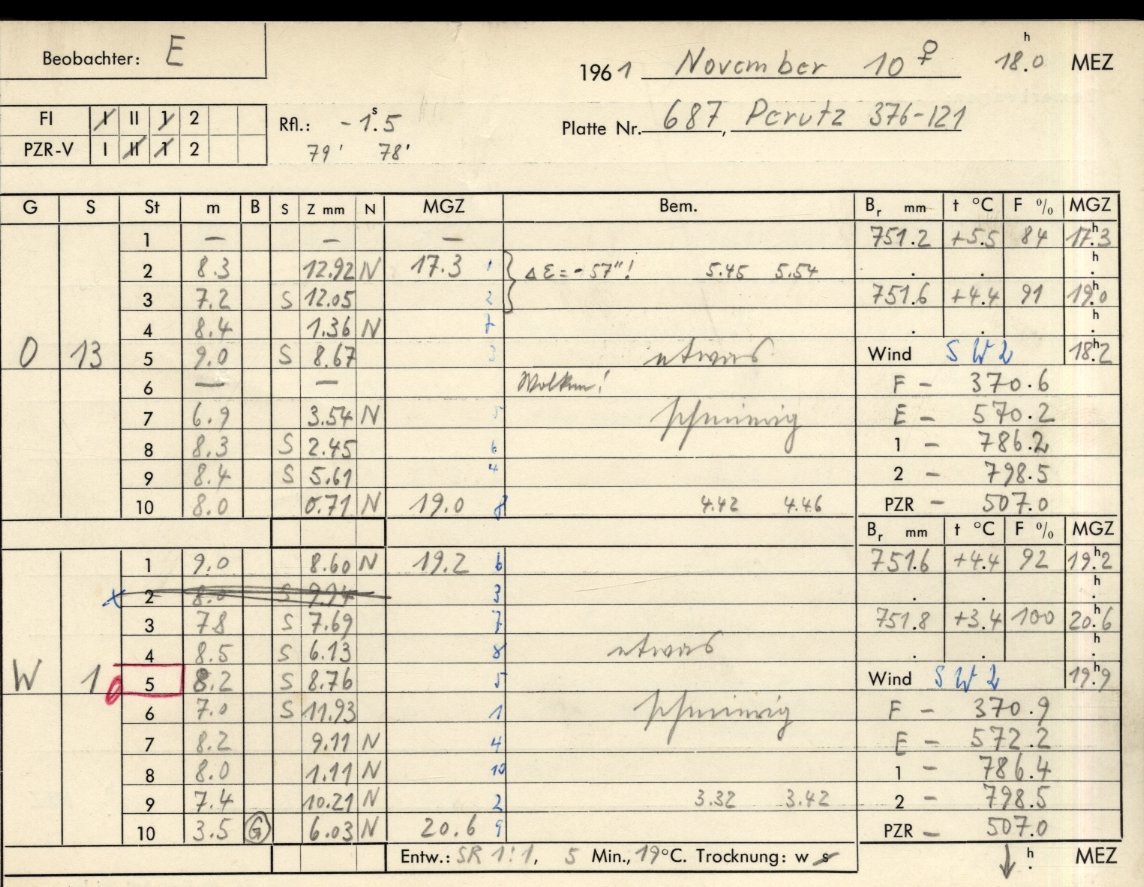 Beobachter: E
1961 November 10 ♀ 18.0 h MEZ
FI I II 1 2
PZR-V I II 1 2
Rfl.: -1.5 s
79' 78'
Platte Nr. 687, Perutz 376-121
G S St m B S Z mm N MGZ Bem. Br mm t °C F % MGZ
1 — — — 751.2 +5.5 84 17.3 h
2 8.3 12.92 N 17.3 1 ΔE = -57"! 5.45 5.54 . . h .
3 7.2 S 12.05 2 751.6 +4.4 91 19.0 h
4 8.4 1.36 N 7 . . h .
O 13 5 9.0 S 8.67 3 etwas Wind SW 2 18.2 h
6 — — Wolken! F – 370.6
7 6.9 3.54 N 5 E – 570.2
8 8.3 S 2.45 6 1 – 786.2
9 8.4 S 5.61 4 2 – 798.5
10 8.0 0.71 N 19.0 8 4.42 4.46 PZR – 507.0
Br mm t °C F % MGZ
1 9.0 8.60 N 19.2 6 751.6 +4.4 92 19.2 h
x 2 8.0 S 9.94 3 . . h .
3 7.8 S 7.69 7 751.8 +3.4 100 20.6 h
4 8.5 S 6.13 8 etwas . . h .
W 10 5 8.2 S 8.76 5 Wind SW 2 19.9 h
6 7.0 S 11.93 1 F – 370.9
7 8.2 9.11 N 4 E – 572.2
8 8.0 1.11 N 10 1 – 786.4
9 7.4 10.21 N 2 3.32 3.42 2 – 798.5
10 3.5 G 6.03 N 20.6 9 PZR – 507.0
Entw.: SR 1:1, 5 Min., 19°C. Trocknung: w s h . MEZ